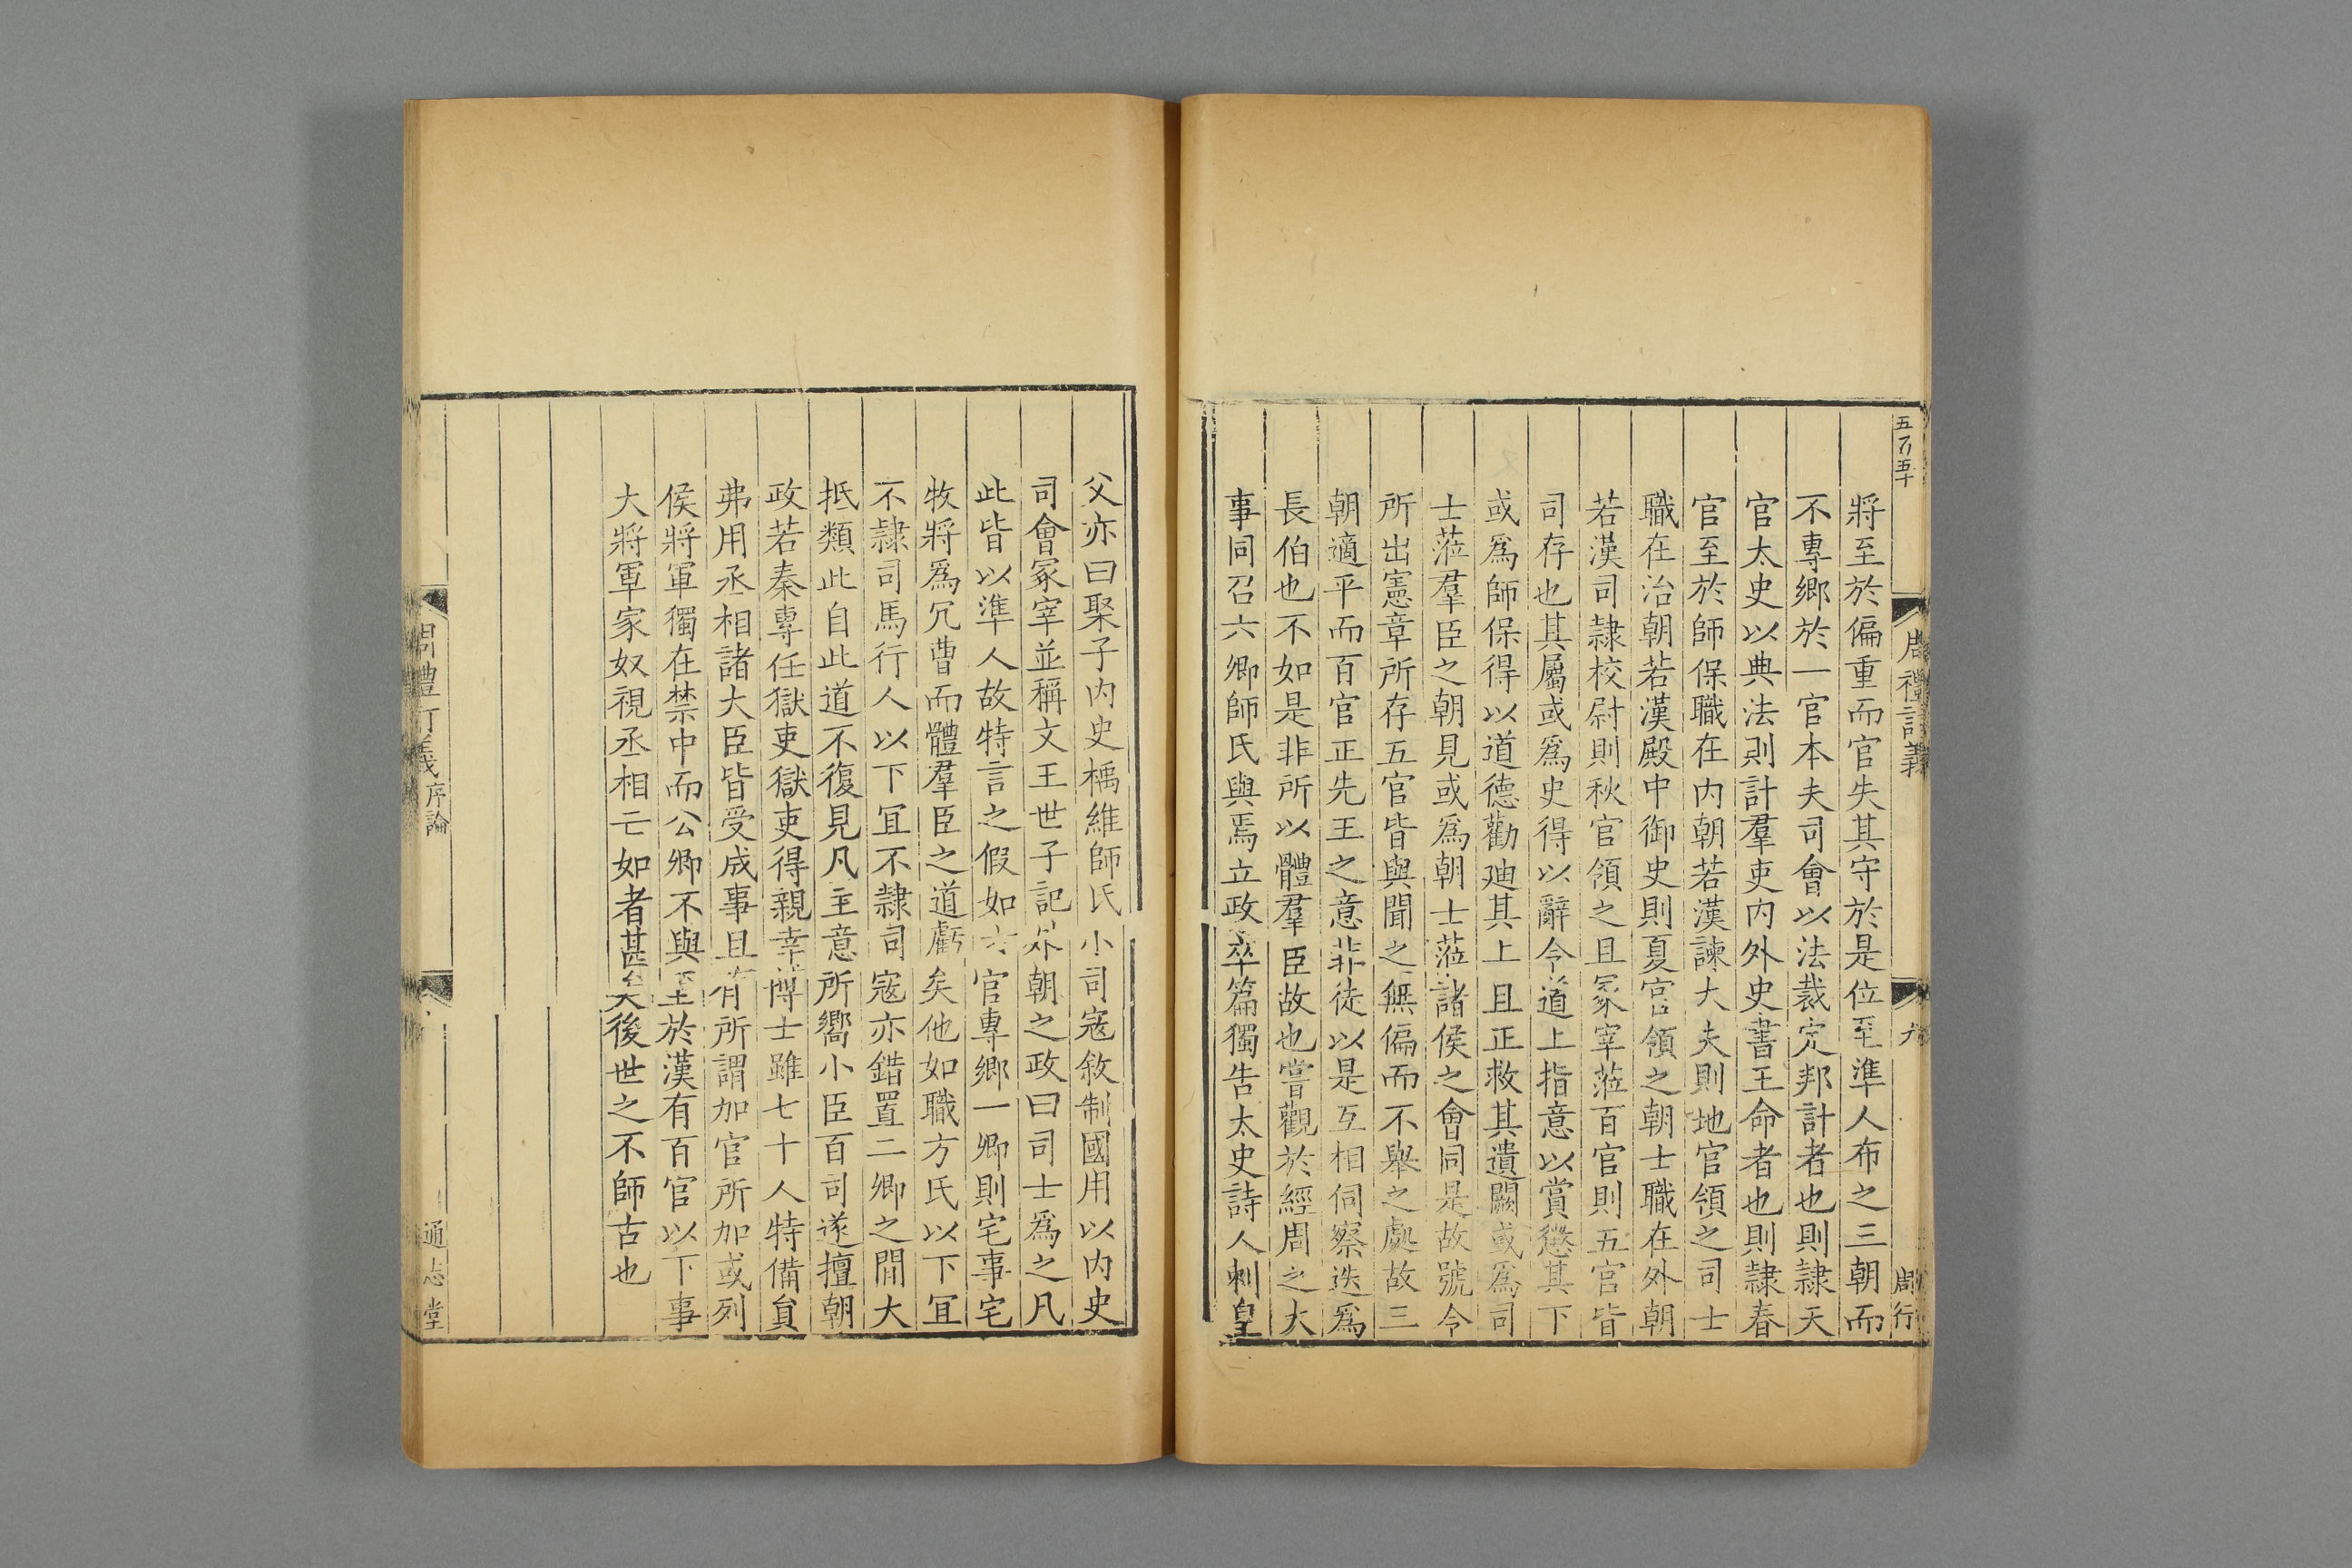 五百五十
周禮訂義
九
周行
將至於偏重而官失其守於是位至準人布之三朝而
不專鄉於一官本夫司會以法裁定邦計者也則隸天
官太史以典法則計羣吏内外史書王命者也則隸春
官至於師保職在内朝若漢諫大夫則地官領之司士
職在治朝若漢殿中御史則夏官領之朝士職在外朝
若漢司隸校尉則秋官領之且冢宰蒞百官則五官皆
司存也其屬或爲史得以辭令道上指意以賞懲其下
或爲師保得以道德勸廸其上且正救其遺闕或爲司
士蒞羣臣之朝見或爲朝士蒞諸侯之會同是故號令
所出憲章所存五官皆與聞之無偏而不舉之處故三
朝適平而百官正先王之意非徒以是互相伺察迭爲
長伯也不如是非所以體羣臣故也嘗觀於經周之大
事同召六卿師氏與焉立政卒篇獨告太史詩人刺皇
父亦曰聚子内史楀維師氏小司寇敘制國用以内史
司會冢宰並稱文王世子記外朝之政曰司士爲之凡
此皆以準人故特言之假如六官專鄉一卿則宅事宅
牧將爲冗曹而體羣臣之道虧矣他如職方氏以下冝
不隸司馬行人以下冝不隸司寇亦錯置二卿之閒大
抵類此自此道不復見凡主意所嚮小臣百司遂擅朝
政若秦專任獄吏獄吏得親幸博士雖七十人特備貟
弗用丞相諸大臣皆受成事且有所謂加官所加或列
侯將軍獨在禁中而公卿不與至於漢有百官以下事
大將軍家奴視丞相亡如者甚矣後世之不師古也
周禮訂義序論
通志堂